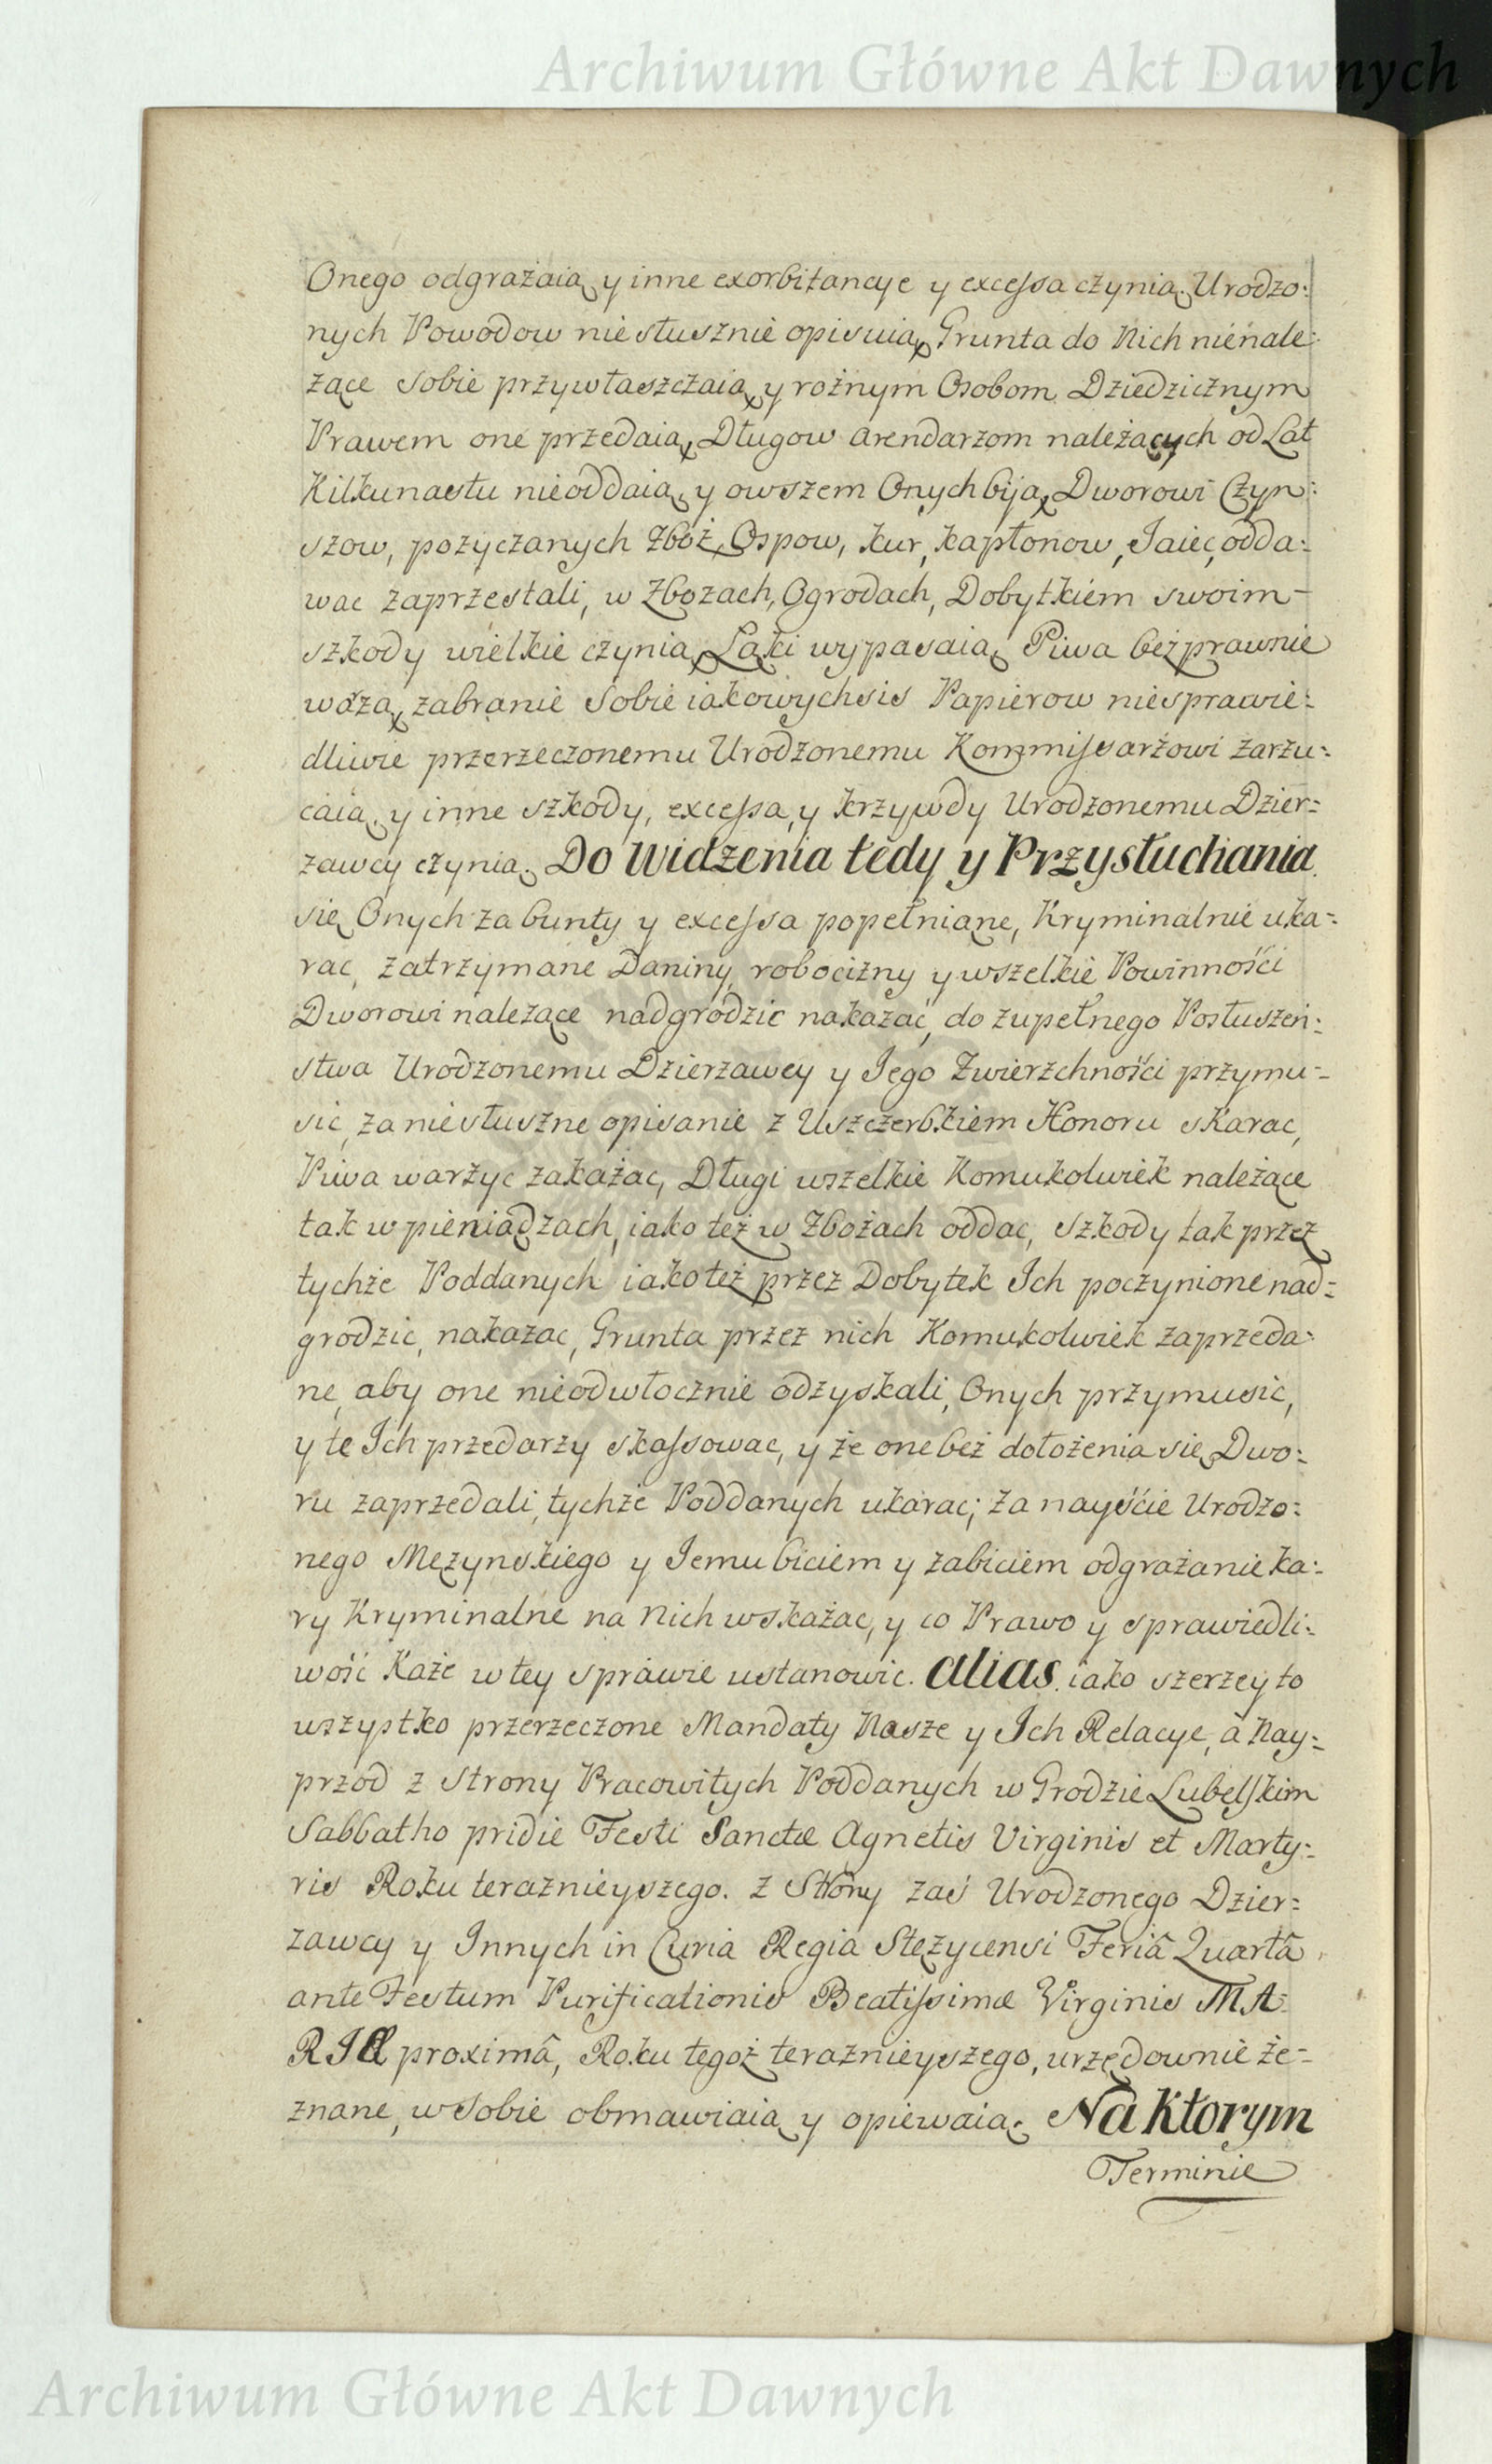 Archiwum Główne Akt Dawnych
Onego odgrażaią y inne exorbitancye y excessa czynią. Urodzo:
nych Powodow niesłusznie opisuią, Grunta do Nich nienale:
żące sobie przywłaszczaią, y rożnym Osobom Dziedzicznym
Prawem one przedaią, Długow arendarzom należących od Lat
Kilkunastu nieoddaią, y owszem Onych biją, Dworowi Czyn:
szow, pożyczanych Zboż, Ospow, kur, kapłonow, Jaiec, odda:
wac zaprzestali, w Zbożach, Ogrodach, Dobytkiem swoim –
szkody wielkie czynią, Łąki wypasaią, Piwa bezprawnie
wożą, zabranie Sobie iakowychsis Papierow niesprawie:
dliwie przerzeczonemu Urodzonemu Kommissarzowi zarzu:
caią, y inne szkody, excessa, y krzywdy Urodzonemu Dzier:
żawcy czynią. Do Widzenia tedy y Przysłuchania
się Onych za bunty y excessa popełniane, Kryminalnie uka:
rac, zatrzymane Daniny, robocizny y wszelkie Powinności
Dworowi należące nadgrodzic nakazać, do zupełnego Posłuszeń:
stwa Urodzonemu Dzierzawcy y Jego Zwierzchności przymu:
sic, za niesłuszne opisanie z Uszczerbkiem Honoru skarac,
Piwa warzyc zakazac, Długi wszelkie Komukolwiek należące
tak w pieniądzach, iako też w Zbożach oddac, szkody tak przez
tychże Poddanych iako też przez Dobytek Ich poczynione nad:
grodzic, nakazac, Grunta przez nich Komukolwiek zaprzeda:
ne, aby one nieodwłocznie odzyskali, Onych przymusic,
y te Ich przedarzy skassowac, y że one beż dołożenia się Dwo:
ru zaprzedali, tychże Poddanych ukarac; za nayście Urodzo:
nego Mężynskiego y Jemu biciem y zabiciem odgrażanie ka:
ry Kryminalne na Nich wskazac, y co Prawo y sprawiedli:
wość Każe w tey sprawie ustanowic. alias iako szerzey to
wszystko przerzeczone Mandaty Nasze y Ich Relacye, à Nay:
przod z Strony Pracowitych Poddanych w Grodzie Lubelskim
Sabbatho pridie Festi Sanctæ Agnetis Virginis et Marty:
ris Roku teraznieyszego. z Strony zaś Urodzonego Dzier:
zawcy y Innych in Curia Regia Stężycensi Feriâ Quartâ
ante Festum Purificationis Beatissimæ Virginis MA:
RIÆ proximâ, Roku tegoż teraznieyszego, urzędownie ze:
znane, w Sobie obmawiaią y opiewaią. Na Ktorym
Terminie
Archiwum Główne Akt Dawnych